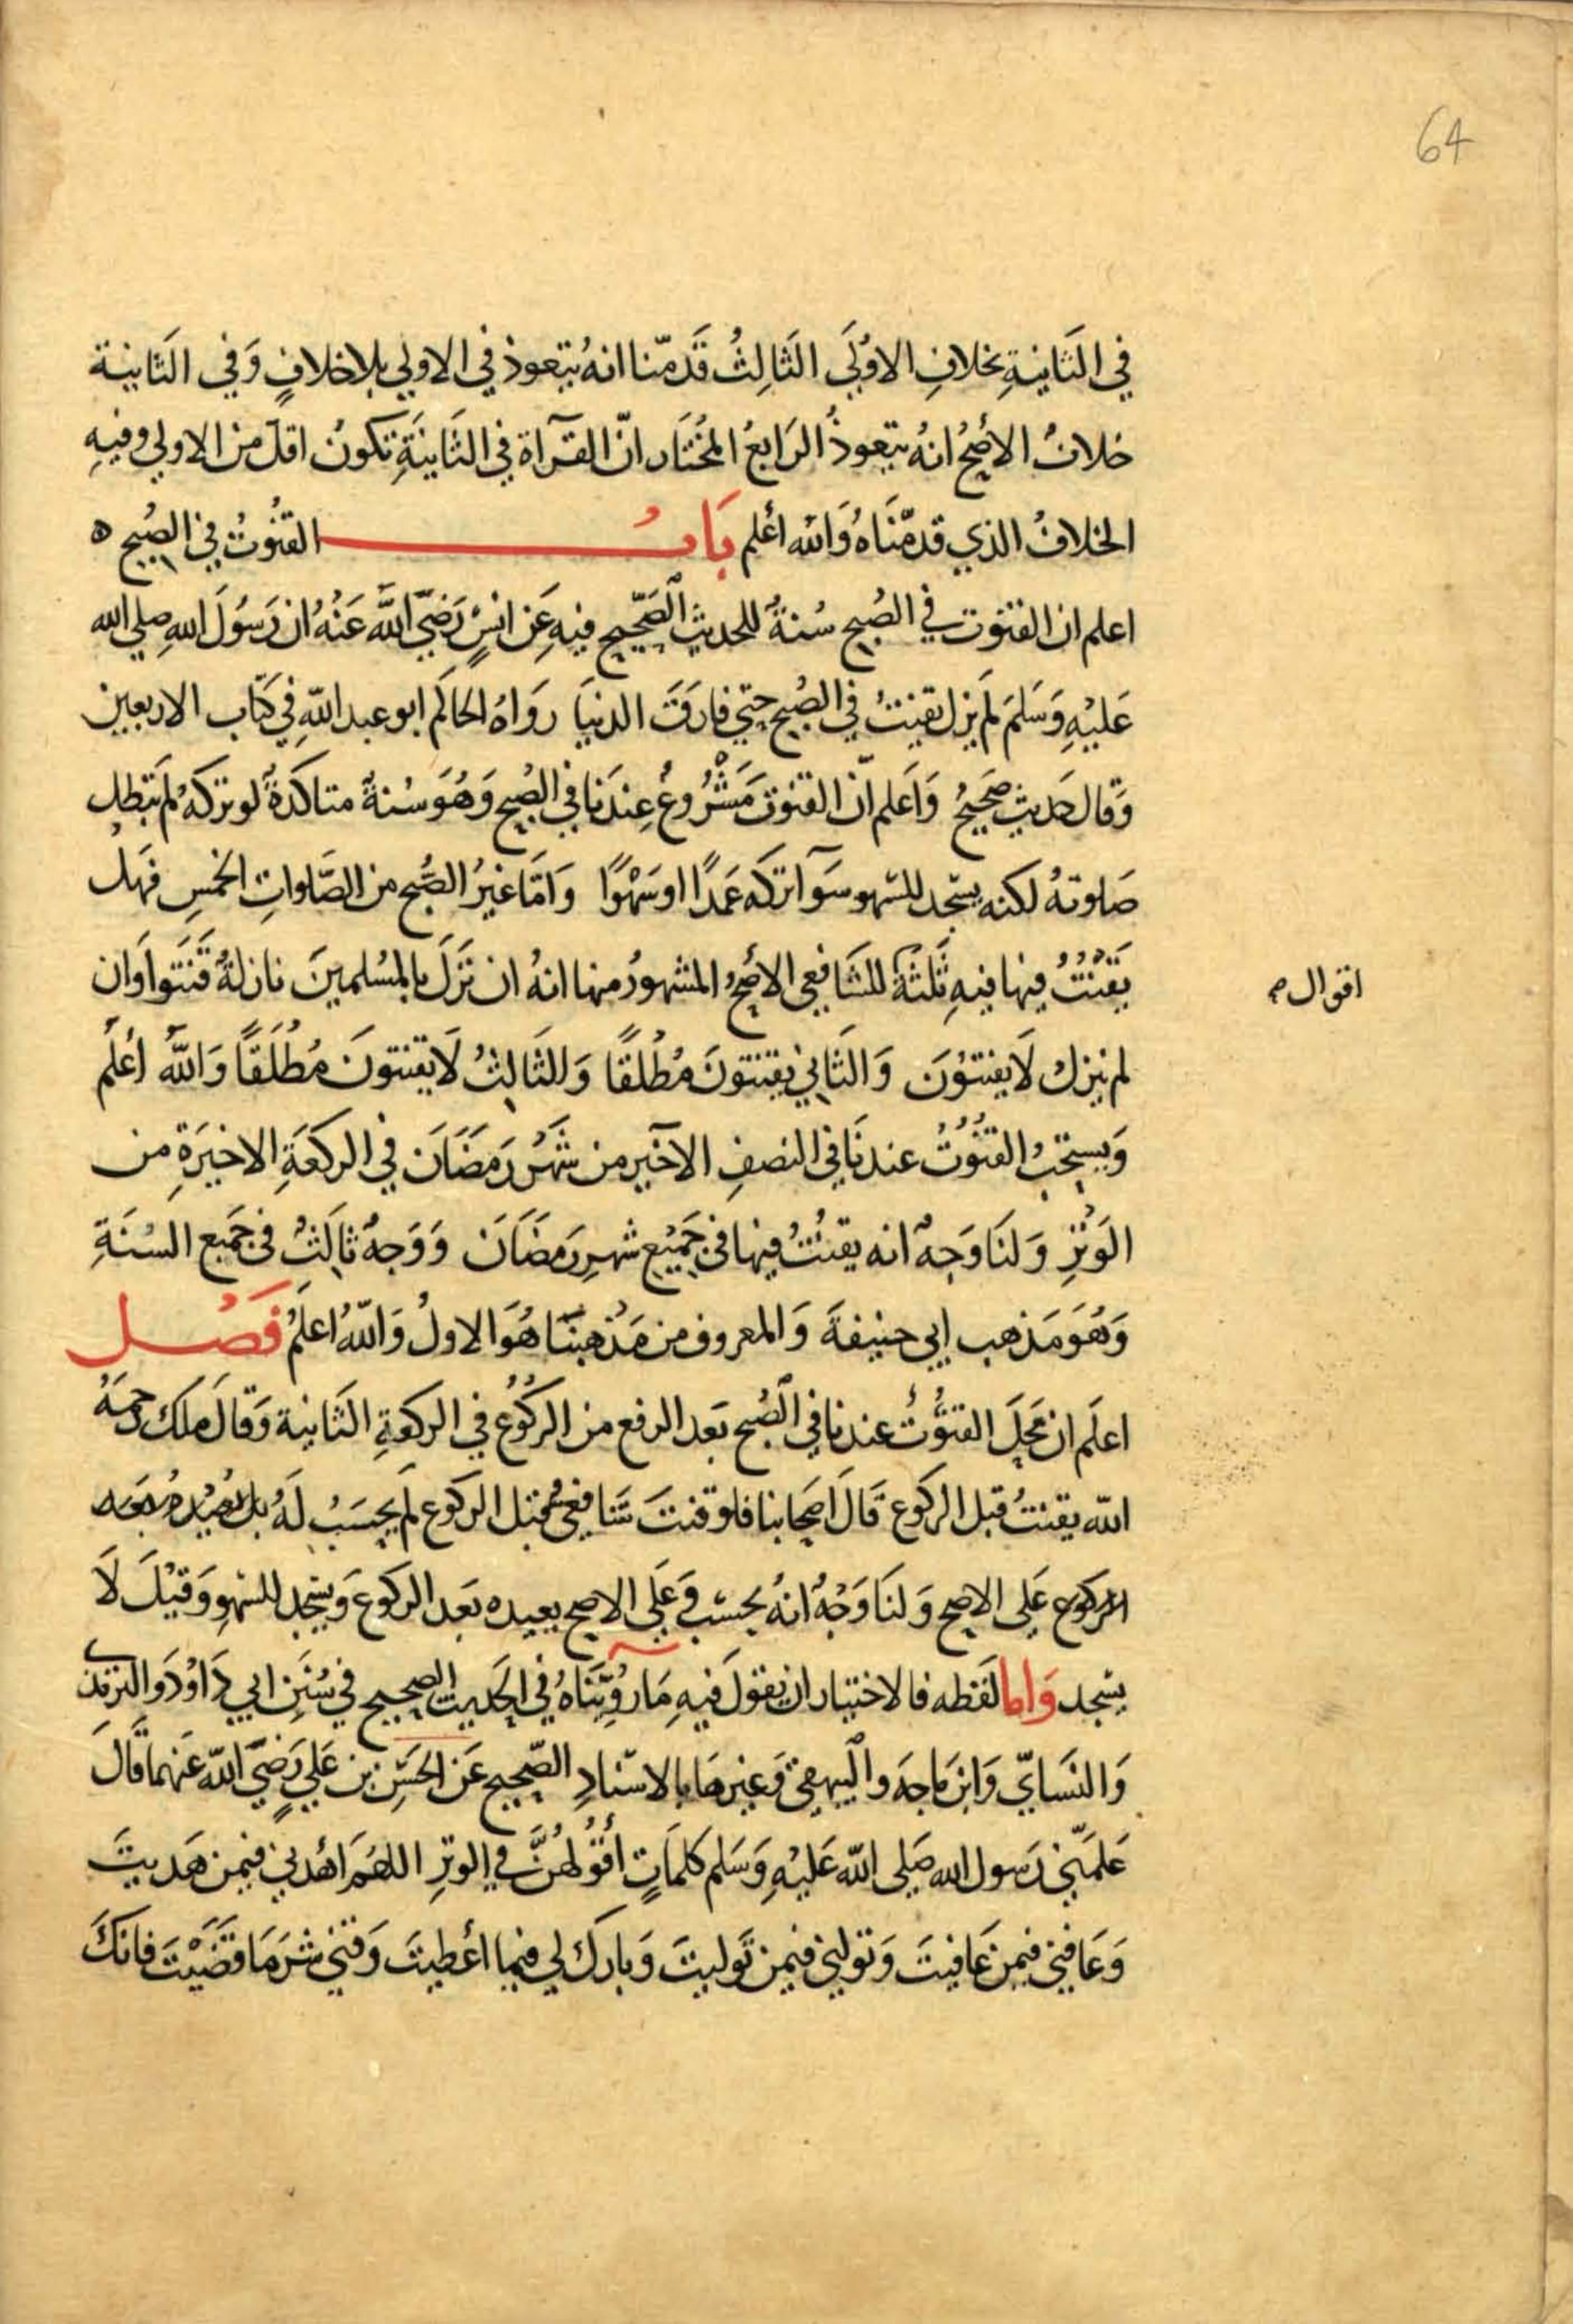 64
في الثَانيةِ بخلافِ الاوُلَي الثَالِثُ قَدمّنا انهُ يتعوذ في الاولي بلا خلافٍ وَفي الثَانية
خلافُ الأصحُ انهُ يتعوذُ الرَابعُ المُختَار انّ القرآة في الثَانيَةِ تكونُ اقلّ من الاولي وفيهِ
الخلافُ الذي قدمّنَاهُ وَالله اعلم بَابُ القنُوتُ في الصُبح ه
اعلم ان القنوت في الصُبح سُنةٌ للحديث الصَحّيح فيهِ عَن انسٍ رَضيَ اللَّه عَنْهُ ان رَسُولَ اللهِ صلي الله
عَليْهِ وَسَلمَ لمَ يزل يقنتُ في الصُبح حتي فارَقَ الدنيَا روَاهُ الحَاكم ابو عبد اللّهِ في كتَاب الاربعين
وَقال حَديث صَحيحٌ وَاَعلم انّ القنوتَ مَشْرُوعٌ عِندَنا في الصُبح وَهُوَ سُنةٌ متاكدَةٌ لو تركهُ لمَ تبطل
صَلوتهُ لكنه يسجد للسَهو سَوَآ تركه عَمدًا او سَهْوًا وَامَّا غيرُ الصُّبح من الصَّلواتِ الخمسِ فهَلْ
يَقنُتُ فيها فيهِ ثَلثةُ للشَافعي الأصَحُ المشهورُ منها انهُ ان نزَلَ بالمسُلمينَ نازلةٌ قَنَتوا وَان
اقوال صح
لم ينزل لاَ يقنتوُنَ وَالثَاني يقنتونَ مُطْلقًا وَالثَالِثُ لاَ يقنتونَ مُطْلَقًا وَاللَّهُ أعْلَم
وَيستحَبُ القنُوُتُ عندنَا في النصفِ الاخير من شهَرْ رَمضَانَ في الركعَةِ الاخيرَةِ من
الوَتْرِ وَلنَا وَجهٌ انه يقنُتُ فيها في جَميْعِ شهرِ رَمضَانَ وَوَجهٌ ثالثٌ في جَميع السُنَةِ
وَهُوَ مَذهب ابي حنيفةَ وَالمعروف من مَذهبنَا هُوَ الاولُ وَاللّهُ اعلَمُ فَصُل
اعلَم ان محَلَ القنُوُتُ عندنا في الصُبح بَعد الرفع من الركُوُع في الركعةِ الثَانية وَقالَ ملك رحمَهُ
اللّه يقنتُ قبل الركوع قَالَ اصحَابنا فلو قنتَ شافعيٌ قبل الركوع لمَ يحسَبْ لَهُ بل يعيْدهُ بَعد
الركوع عَلي الاصح وَلنَا وَجْهٌ انهُ يحسَب وَعَلي الاصح يعيده بَعد الركوع وَيسجد للسَهوِ وَقيْلَ لاَ
يسجد وَاما لَفظه فالاختيار ان يقولَ فيهِ مَا رُويّنَاهُ في الحَديث الصحيح في سُنَنِ ابي دَاوُدَ والترمذي
وَالنسَايّ وَابن مَاجه وَالبيهقيّ وَغيرهَا بالاسنادِ الصّحيح عَن الحَسَن بن عَليٍ رَضيَ اللّه عَنهما قَالَ
عَلمَّني رَسول الله صَلي اللّه عَليْهِ وَسَلم كلمَاتٍ أقُوُلهُنَّ في الوترِ اللهُمَ اهُدِني فيمن هَديتَ
وَعَافني فيمن عَافيتَ وَتولني فيمن تَوليتَ وَبارك لي فيما أعْطيتَ وَقني شرَ مَا قضَيْتَ فانكَ